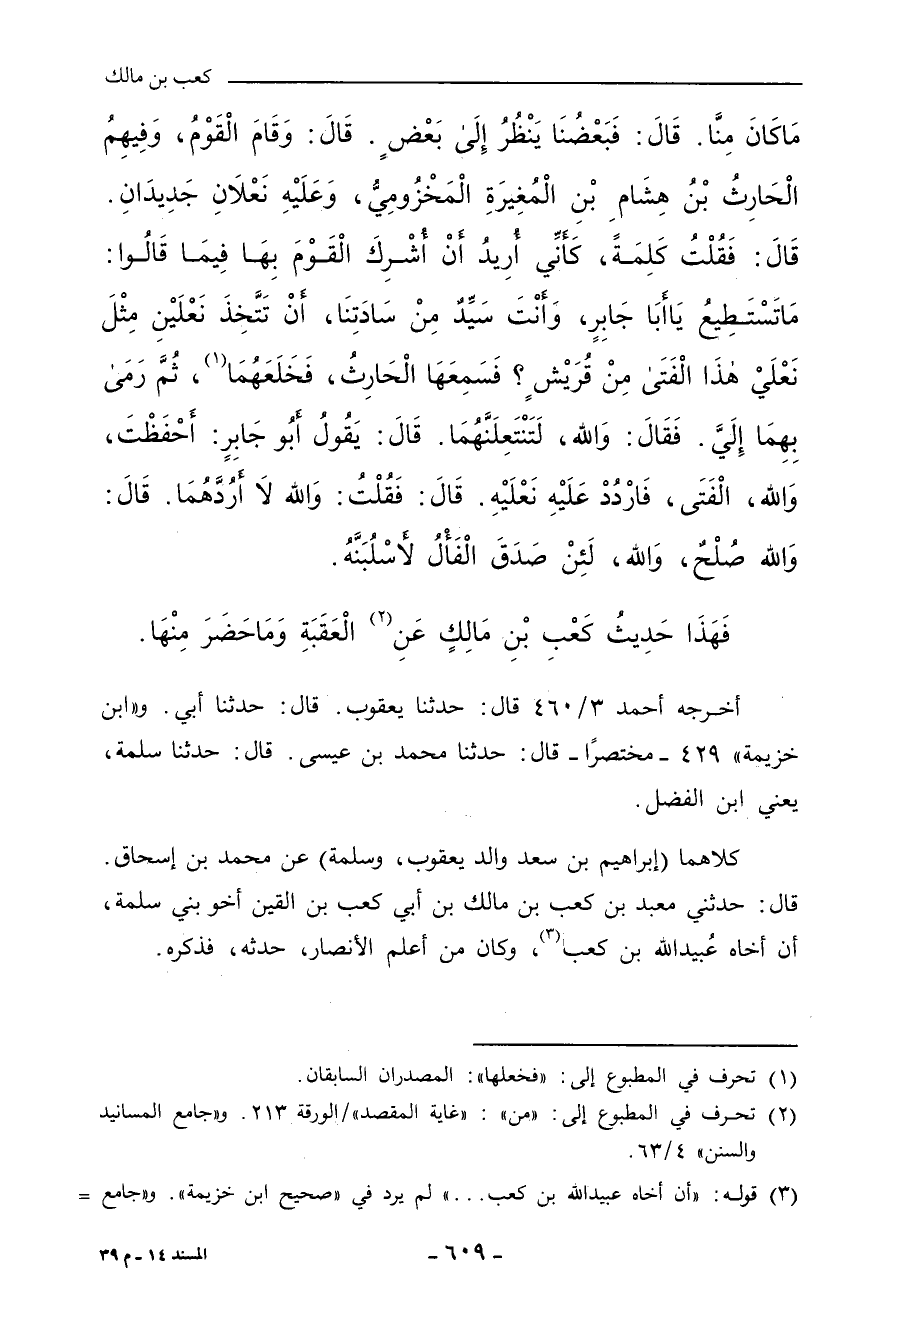 كعب بن مالك
مَاكَانَ مِنَّا. قَالَ: فَبَعْضُنَا يَنْظُرُ إِلَىٰ بَعْضٍ. قَالَ: وَقَامَ الْقَوْمُ، وَفِيهِمُ
الْحَارِثُ بْنُ هِشَامِ بْنِ الْمُغِيرَةِ الْمَخْزُومِيُّ، وَعَلَيْهِ نَعْلَانِ جَدِيدَانِ.
قَالَ: فَقُلْتُ كَلِمَةً، كَأَنِّي أُرِيدُ أَنْ أُشْرِكَ الْقَوْمَ بِهَا فِيمَا قَالُوا:
مَاتَسْتَطِيعُ يَاأَبَا جَابِرٍ، وَأَنْتَ سَيِّدٌ مِنْ سَادَتِنَا، أَنْ تَتَّخِذَ نَعْلَيْنِ مِثْلَ
نَعْلَيْ هٰذَا الْفَتَىٰ مِنْ قُرَيْشٍ؟ فَسَمِعَهَا الْحَارِثُ، فَخَلَعَهُمَا(١)، ثُمَّ رَمَىٰ
بِهِمَا إِلَيَّ. فَقَالَ: وَاللهِ، لَتَنْتَعِلَنَّهُمَا. قَالَ: يَقُولُ أَبُو جَابِرٍ: أَحْفَظْتَ،
وَاللهِ، الْفَتَى، فَارْدُدْ عَلَيْهِ نَعْلَيْهِ. قَالَ: فَقُلْتُ: وَاللهِ لَا أَرُدُّهُمَا. قَالَ:
وَاللهِ صُلْحٌ، وَاللهِ، لَئِنْ صَدَقَ الْفَأْلُ لَأَسْلُبَنَّهُ.
فَهَذَا حَدِيثُ كَعْبِ بْنِ مَالِكٍ عَنِ(٢) الْعَقَبَةِ وَمَاحَضَرَ مِنْهَا.
أخرجه أحمد ٤٦٠/٣ قال: حدثنا يعقوب. قال: حدثنا أبي. و«ابن
خزيمة» ٤٢٩ ـ مختصرًا ـ قال: حدثنا محمد بن عيسى. قال: حدثنا سلمة،
يعني ابن الفضل.
كلاهما (إبراهيم بن سعد والد يعقوب، وسلمة) عن محمد بن إسحاق.
قال: حدثني معبد بن كعب بن مالك بن أبي كعب بن القين أخو بني سلمة،
أن أخاه عُبيدالله بن كعب(٣)، وكان من أعلم الأنصار، حدثه، فذكره.
(١) تحرف في المطبوع إلى: «فخعلها»: المصدران السابقان.
(٢) تحرف في المطبوع إلى: «من» : «غاية المقصد»/الورقة ٢١٣. و«جامع المسانيد
والسنن» ٦٣/٤.
(٣) قوله: «أن أخاه عبيدالله بن كعب...» لم يرد في «صحيح ابن خزيمة». و«جامع =
المسند ١٤ ـ م ٣٩
ـ ٦٠٩ ـ